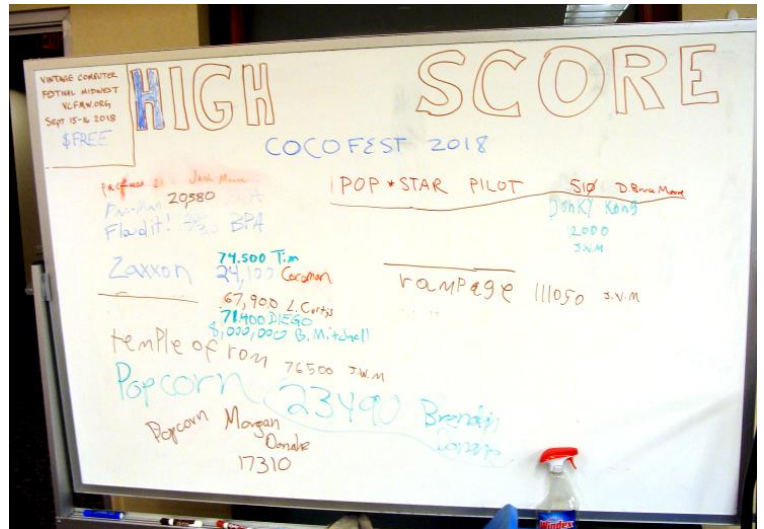 VINTAGE COMPUTER
FSTVAL MIDWEST
VCFMW.ORG
SEPT 15-16 2018
$FREE
HIGH SCORE
COCOFEST 2018
20,580
Flood it! BPA
POP*STAR PILOT 510 D. Bruce Moore
Donky Kong
2000
J.W.M
74,500 Tim
Zaxxon 24,100 Cocoman
67,900 L. Curtis
71,400 DIEGO
8,000,000 B. Mitchell
rampage 111050 J.V.M
temple of rom 76500 J.W.M
Popcorn 23490 Brendan
Popcorn Morgan
Donahe
17310
Windex